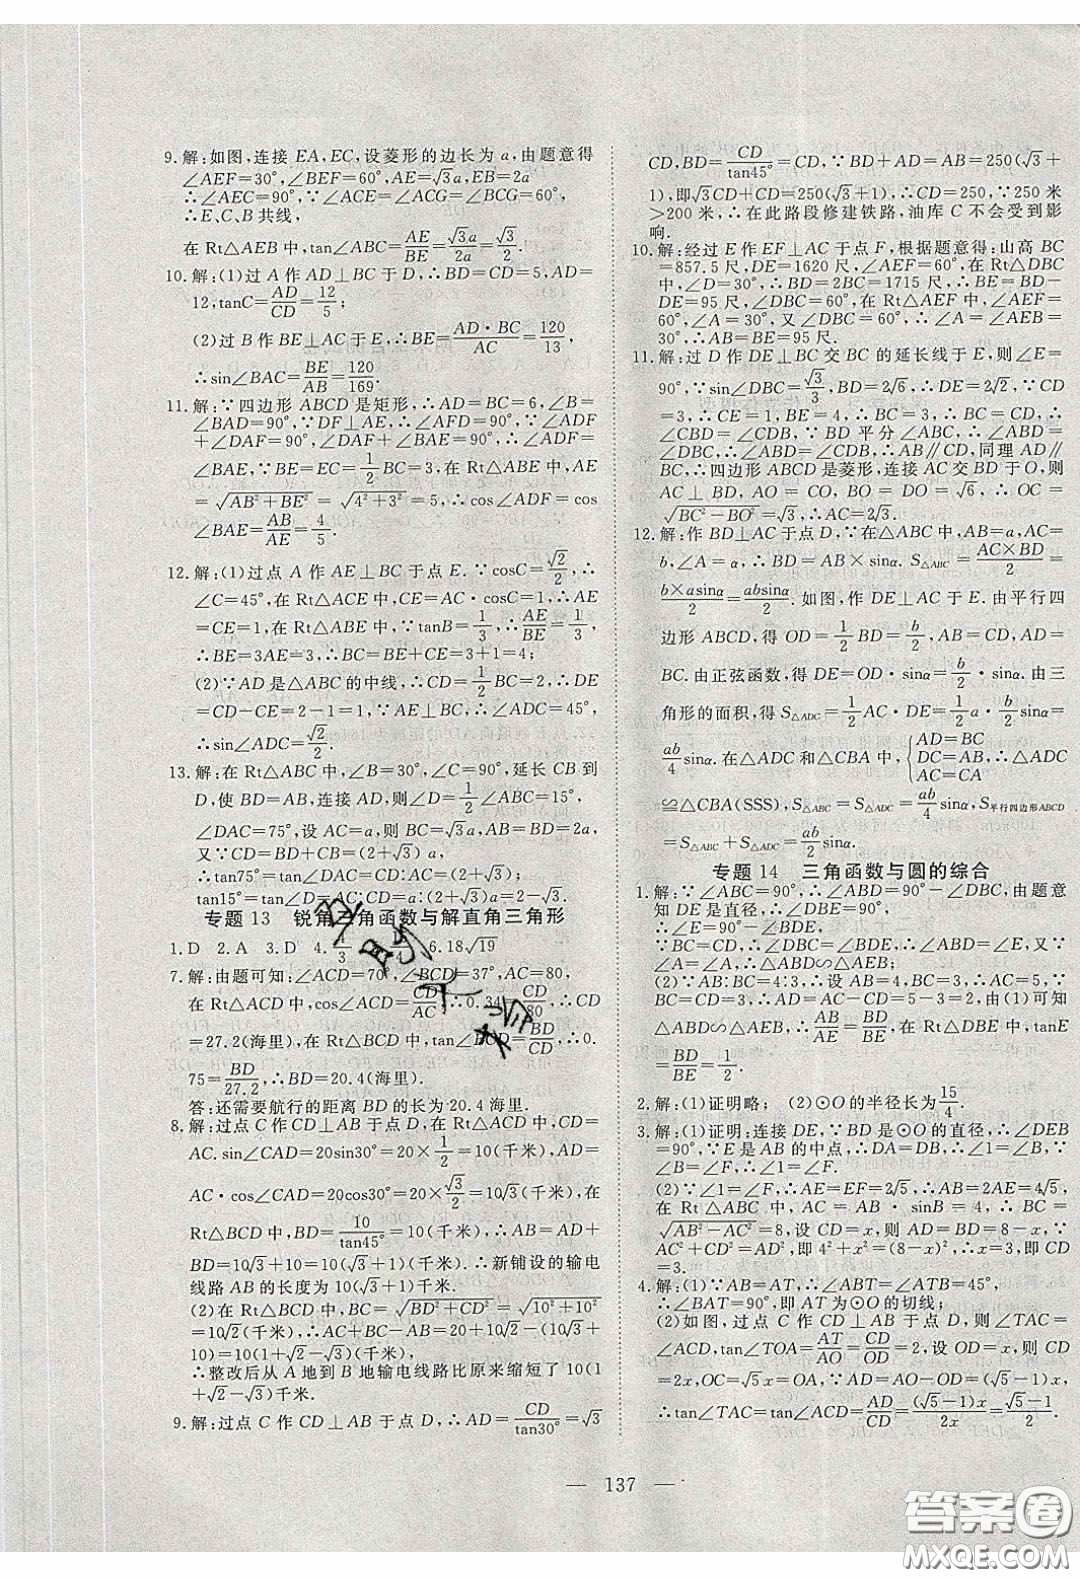 9.解:如图,连接 EA,EC,设菱形的边长为 a,由题意得
∠AEF=30°,∠BEF=60°,AE=√3a,EB=2a
∴∠AEC=90°,∵∠ACE=∠ACG=∠BCG=60°,
∴E、C、B 共线,
在 Rt△AEB 中,tan∠ABC=AE/BE=√3a/2a=√3/2
10.解:(1)过 A 作 AD⊥BC 于 D,∴BD=CD=5,AD=
12,tanC=AD/CD=12/5;
(2)过 B 作 BE⊥AC 于 E,∴BE=AD·BC/AC=120/13,
∴sin∠BAC=BE/AB=120/169.
11.解:∵四边形 ABCD 是矩形,∴AD=BC=6,∠B=
∠BAD=90°,∵DF⊥AE,∴∠AFD=90°,∴∠ADF
+∠DAF=90°,∠DAF+∠BAE=90°,∴∠ADF=
∠BAE,∵BE=EC=1/2BC=3,在 Rt△ABE 中,AE
=√(AB²+BE²)=√(4²+3²)=5,∴cos∠ADF=cos
∠BAE=AB/AE=4/5.
12.解:(1)过点 A 作 AE⊥BC 于点 E.∵cosC=√2/2,∴
∠C=45°,在 Rt△ACE 中,CE=AC·cosC=1,∴AE
=CE=1,在 Rt△ABE 中,∵tanB=1/3,∴AE/BE=1/3,
∴BE=3AE=3,∴BC=BE+CE=4;
(2)∵AD 是△ABC 的中线,∴CD=1/2BC=2,∴DE
=CD-CE=2-1=1,∵AE⊥BC,∴∠ADC=45°,
∴sin∠ADC=√2/2.
13.解:在 Rt△ABC 中,∠B=30°,∠C=90°,延长 CB 到
D,使 BD=AB,连接 AD,则∠D=1/2∠ABC=15°,
∠DAC=75°,设 AC=a,则 BC=√3a,AB=BD=2a,
又∵CD=BC+BD=(2+√3)a,
∴tan75°=tan∠DAC=CD:AC=2+√3,
tan15°=tan∠D=AC:CD=2-√3.
专题 13 锐角三角函数与解直角三角形
1.D 2.A 3.D 4. 6.18√19
7.解:由题可知:∠ACD=70°,∠BCD=37°,AC=80,
在 Rt△ACD 中,cos∠ACD=CD/AC,∴0.34=CD/80,∴CD
=27.2(海里),在 Rt△BCD 中,tan∠BCD=BD/CD,∴0.
75=BD/27.2,∴BD=20.4(海里).
答:还需要航行的距离 BD 的长为 20.4 海里.
8.解:过点 C 作 CD⊥AB 于点 D,在 Rt△ACD 中,CD=
AC.sin∠CAD=20sin30°=20×1/2=10(千米),AD=
AC·cos∠CAD=20cos30°=20×√3/2=10√3(千米),在
Rt△BCD 中,BD=10/tan45°=10(千米),∴AB=AD+
BD=10√3+10=10(√3+1)(千米).∴新铺设的输电
线路 AB 的长度为 10(√3+1)(千米).
(2)在 Rt△BCD 中,BC=√(BD²+CD²)=√(10²+10²)=
10√2(千米)∴AC+BC-AB=20+10√2-(10√3+
10)=10(1+√2-√3)(千米)
∴整改后从 A 地到 B 地输电线路比原来缩短了 10(1
+√2-√3)千米.
9.解:过点 C 作 CD⊥AB 于点 D,∴AD=CD/tan30°=√3
CD,BD=CD/tan45°=CD,∵BD+AD=AB=250(√3+
1),即√3CD+CD=250(√3+1),∴CD=250,∵250 米
>200 米,∴在此路段修建铁路,油库 C 不会受到影
响.
10.解:经过 E 作 EF⊥AC 于点 F,根据题意得:山高 BC
=857.5 尺,DE=1620 尺,∠AEF=60°,在 Rt△DBC
中,∠D=30°,∴DB=2BC=1715 尺,∴BE=BD-
DE=95 尺,∠DBC=60°,在 Rt△AEF 中,∠AEF=
60°,∴∠A=30°,又∠DBC=60°,∴∠A=∠AEB=
30°,∴AB=BE=95 尺.
11.解:过 D 作 DE⊥BC 交 BC 的延长线于 E,则∠E=
90°,∵sin∠DBC=√3/3,BD=2√6,∴DE=2√2,∵CD
=3,∴CE=1,BE=4,∴BC=3,∴BC=CD,∴
∠CBD=∠CDB,∵BD 平分∠ABC,∴∠ABD=
∠DBC,∴∠ABD=∠CDB,∴AB∥CD,同理 AD∥
BC,∴四边形 ABCD 是菱形,连接 AC 交 BD 于 O,则
AC⊥BD,AO=CO,BO=DO=√6,∴OC=
√(BC²-BO²)=√3,∴AC=2√3.
12.解:作 BD⊥AC 于点 D,∵在△ABC 中,AB=a,AC=
b,∠A=α,∴BD=AB×sinα,∴S△ABC=AC×BD/2=
b×asinα/2=absinα/2.如图,作 DE⊥AC 于 E.由平行四
边形 ABCD,得 OD=1/2BD=b/2,AB=CD,AD=
BC.由正弦函数,得 DE=OD·sinα=b/2·sinα.由三
角形的面积,得 S△ADC=1/2AC·DE=1/2a·b/2sinα=
ab/4sinα.在△ADC 和△CBA 中,{AD=BC DC=AB AC=CA,∴△ADC
≌△CBA(SSS),S△ABC=S△ADC=ab/4sinα,S平行四边形ABCD
=S△ABC+S△ADC=ab/2sinα.
专题 14 三角函数与圆的综合
1.解:(1)∵∠ABC=90°,∴∠ABD=90°-∠DBC,由题意
知 DE 是直径,∴∠DBE=90°,∴∠E=90°-∠BDE,
∵BC=CD,∴∠DBC=∠BDE,∴∠ABD=∠E,∵
∠A=∠A,∴△ABD∽△AEB;
(2)∵AB:BC=4:3,∴设 AB=4,BC=3,∴AC=5,∵
BC=CD=3,∴AD=AC-CD=5-3=2,由(1)可知
△ABD∽△AEB,∴AB/AE=BD/BE,在 Rt△DBE 中,tanE
=BD/BE=1/2.
2.解:(1)证明略; (2)⊙O 的半径长为15/4.
3.解:(1)证明:连接 DE,∵BD 是⊙O 的直径,∴∠DEB
=90°,∵E 是 AB 的中点,∴DA=DB,∴∠1=∠B,
∵∠B=∠F,∴∠1=∠F;
(2)∵∠1=∠F,∴AE=EF=2√5,∴AB=2AE=4√5,在
Rt△ABC 中,AC=AB·sinB=4,∴BC=
√(AB²-AC²)=8,设 CD=x,则 AD=BD=8-x,∵
AC²+CD²=AD²,即 4²+x²=(8-x)²,∴x=3,即 CD
=3.
4.解:(1)∵AB=AT,∴∠ABT=∠ATB=45°,
∴∠BAT=90°,即 AT 为⊙O 的切线;
(2)如图,过点 C 作 CD⊥AB 于 D,则∠TAC=
∠ACD,tan∠TOA=AT/AO=CD/OD=2,设 OD=x,则 CD
=2x,OC=√5x=OA,∵AD=AO-OD=(√5-1)x,
∴tan∠TAC=tan∠ACD=AD/CD=(√5-1)x/2x=(√5-1)/2.
— 137 —
答案圈
MXQE.COM